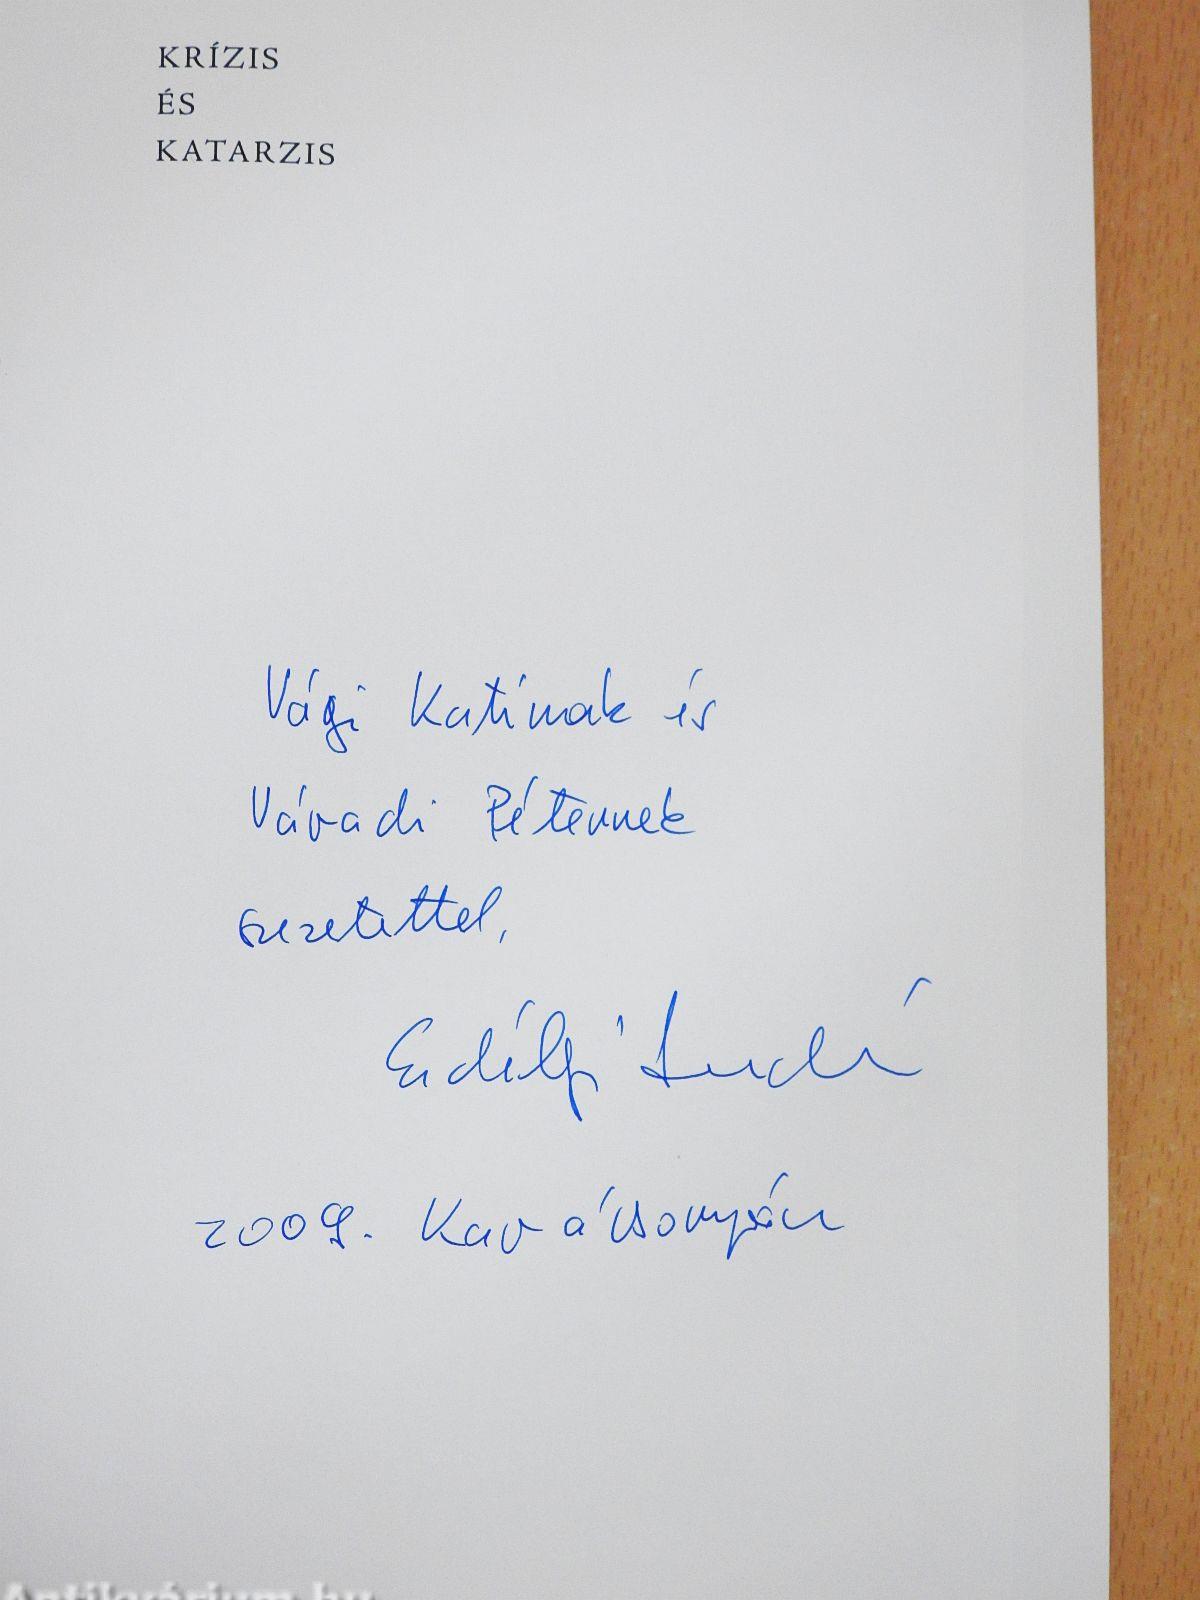 KRÍZIS
ÉS
KATARZIS
Vági Katinak és
Váradi Péternek
szeretettel,
Erdélyi Ildikó
2009. Karácsonyán
Antikvárium.hu